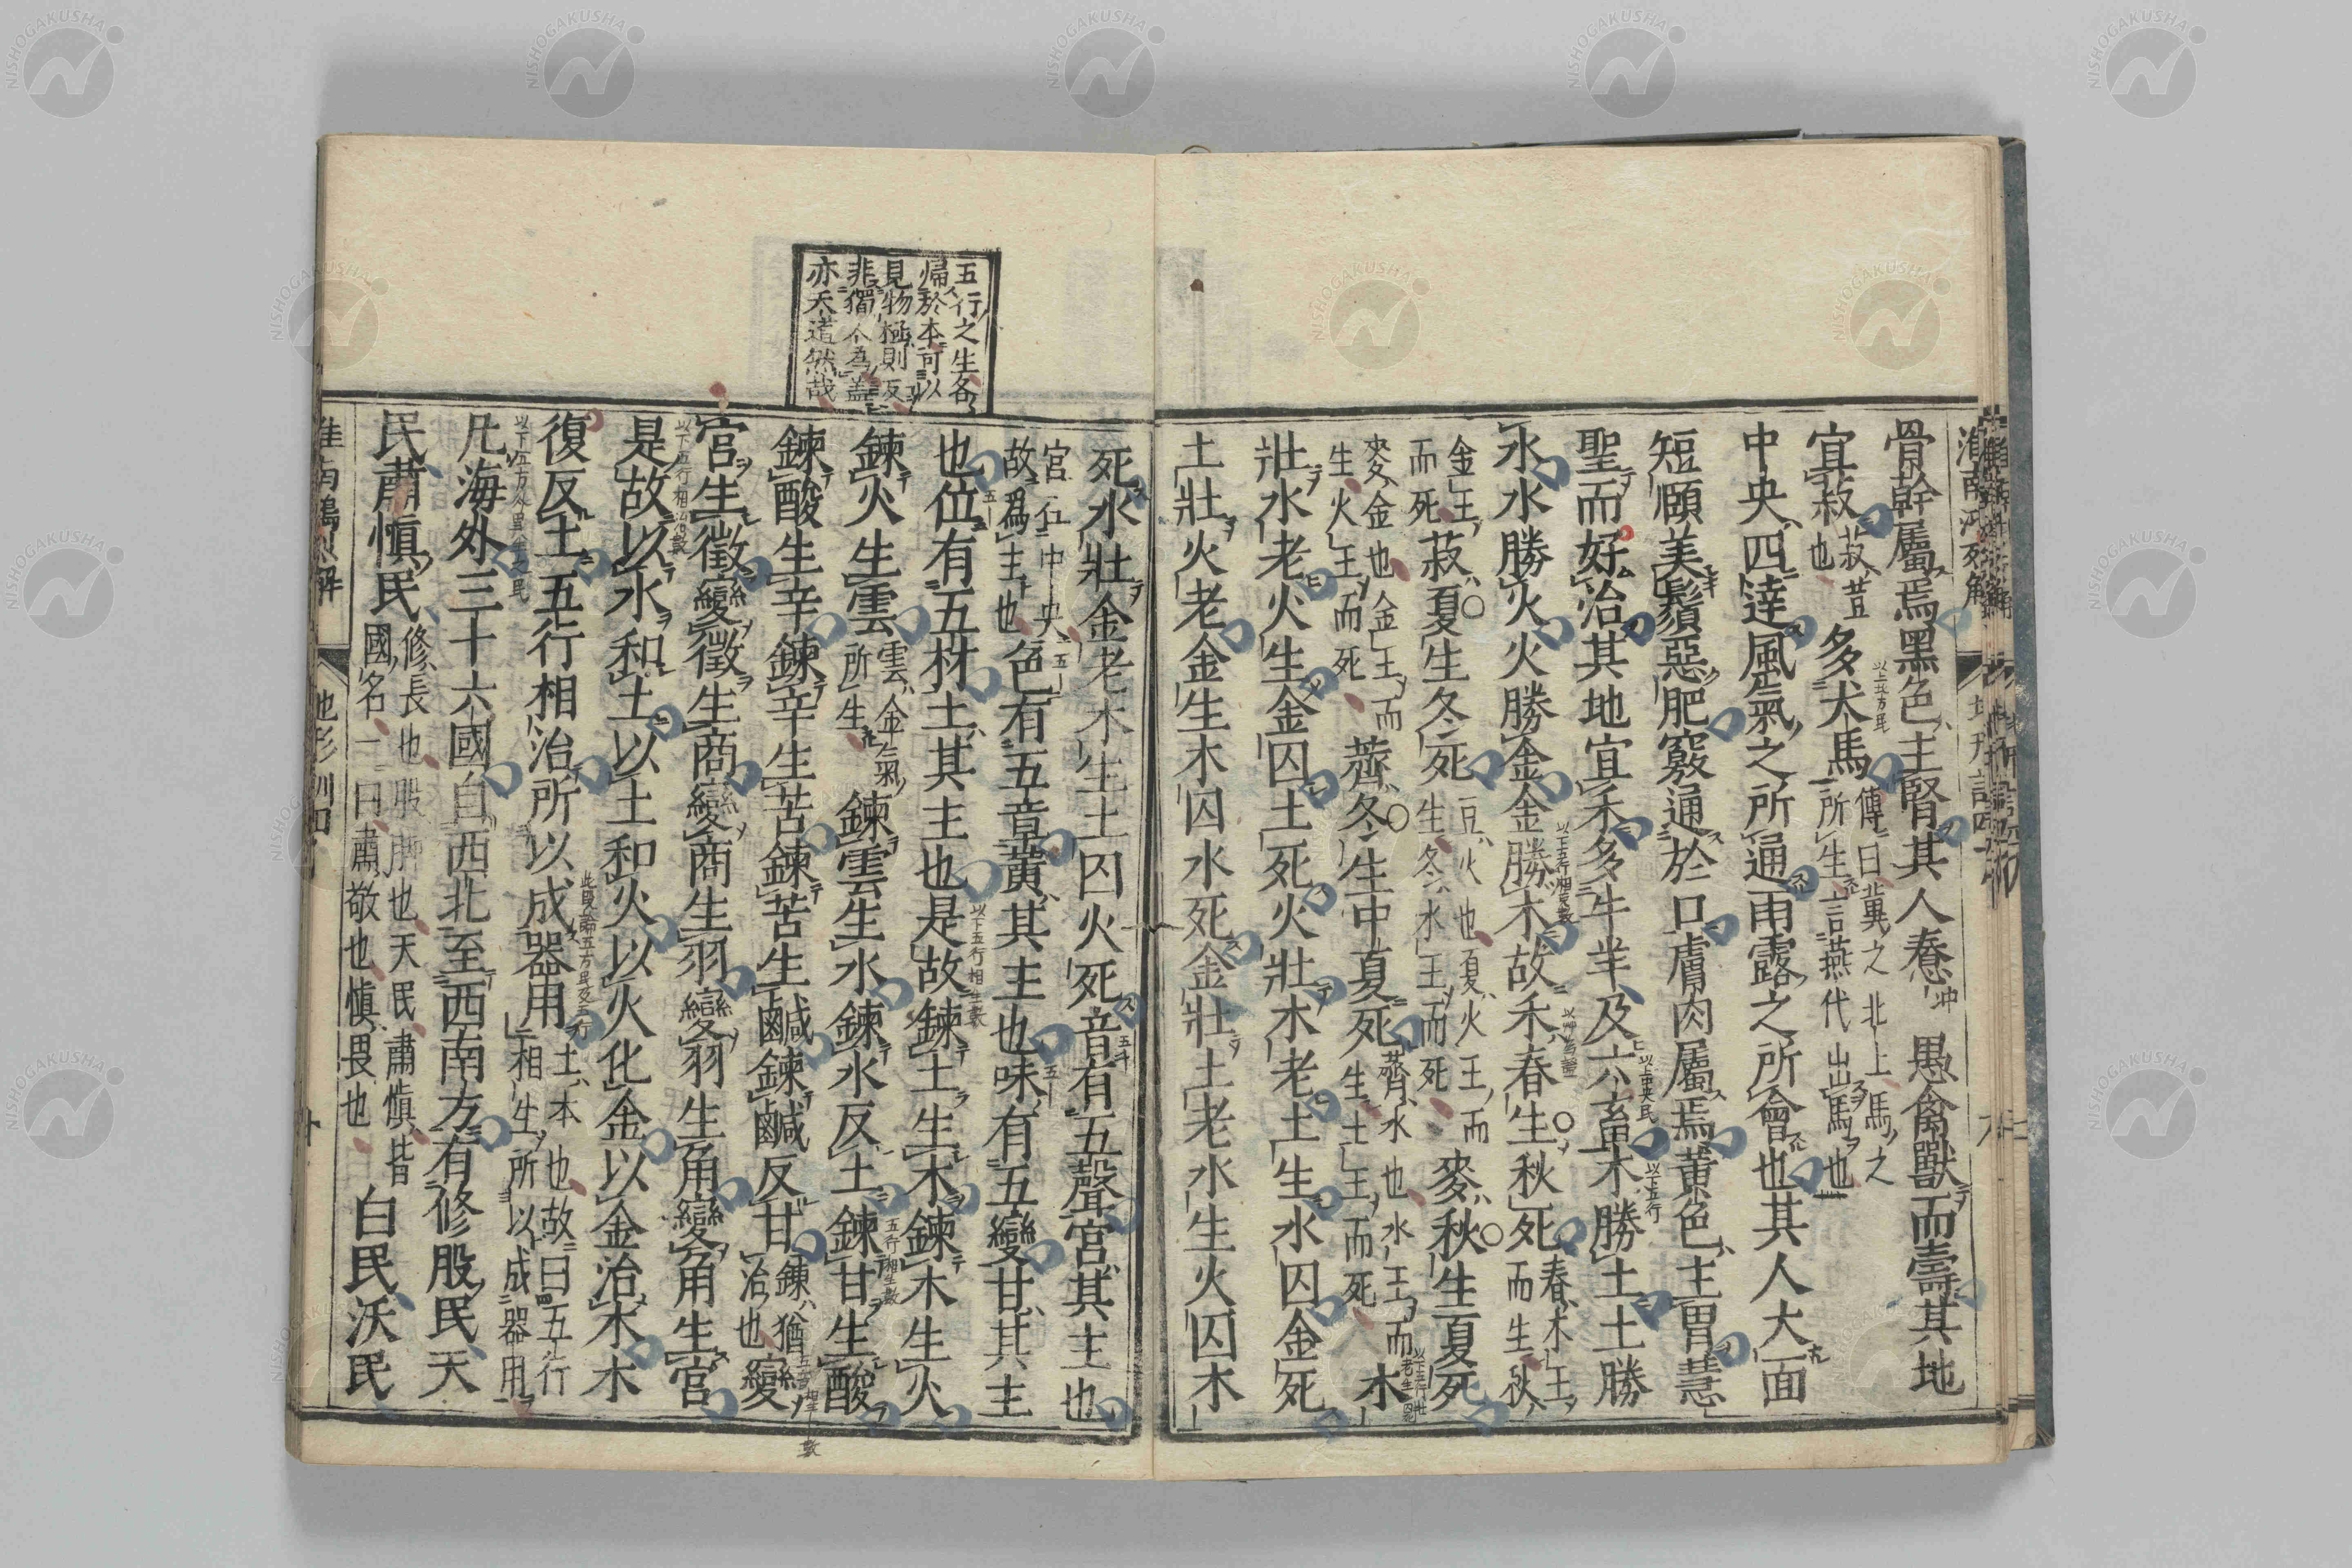 骨幹屬焉黑色主腎其人惷 愚禽獸而壽其地
宜菽 菽荳也 多犬馬 傳曰冀之北土馬之所生言燕代出馬也
中央四達風氣之所通雨露之所會也其人大面
短頤美鬚惡肥竅通於口膚肉屬焉黃色主胃慧
聖而好治其地宜禾多牛羊及六畜木勝土土勝
水水勝火火勝金金勝木故禾春生秋死 春木王而生秋
金王而死 菽夏生冬死 豆火也夏火王而生冬水王而死 麥秋生夏死
麥金也金王而生火王而死 薺冬生中夏死 薺水也水王而生土王而死 木
壯水老火生金囚土死火壯木老土生水囚金死
土壯火老金生木囚水死金壯土老水生火囚木
死水壯金老木生土囚火死音有五聲宮其主也
宮在中央故爲主也 色有五章黃其主也味有五變甘其主
也位有五材土其主也是故鍊土生木鍊木生火
鍊火生雲 雲金氣所生 鍊雲生水鍊水反土鍊甘生酸
鍊酸生辛鍊辛生苦鍊苦生鹹鍊鹹反甘 鍊猶治也 變
宮生徵變徵生商變商生羽變羽生角變角生宮
是故以水和土以土和火以火化金以金治木木
復反土五行相治所以成器用 土本也故曰五行相生所以成器用
凡海外三十六國自西北至西南方有修股民天
民肅慎民 修長也股脚也天民肅慎皆國名一曰肅敬也慎畏也 白民沃民
五行之生各
歸於本可以
見物極則反
非獨人為蓋
亦天道然哉